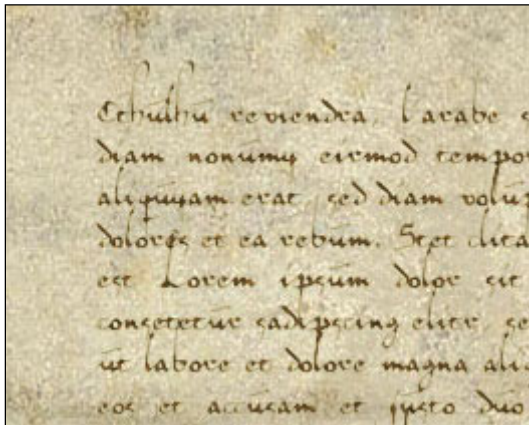 Cthulhu reviendra, l'arabe s
diam nonumy eirmod tempor
aliquyam erat, sed diam volup
dolores et ea rebum. Stet clita
est Lorem ipsum dolor sit
consetetur sadipscing elitr, se
ut labore et dolore magna aliq
eos et accusam et justo duo